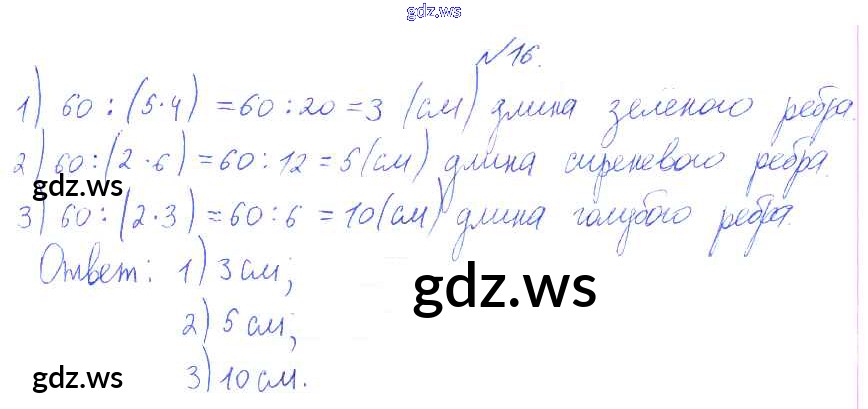 gdz.ws
№16.
1) 60 : (5·4) = 60 : 20 = 3 (см) длина зелёного ребра.
2) 60 : (2·6) = 60 : 12 = 5 (см) длина сиреневого ребра.
gdz.ws
3) 60 : (2·3) = 60 : 6 = 10 (см) длина голубого ребра.
Ответ: 1) 3 см;
gdz.ws
2) 5 см;
gdz.ws
3) 10 см.